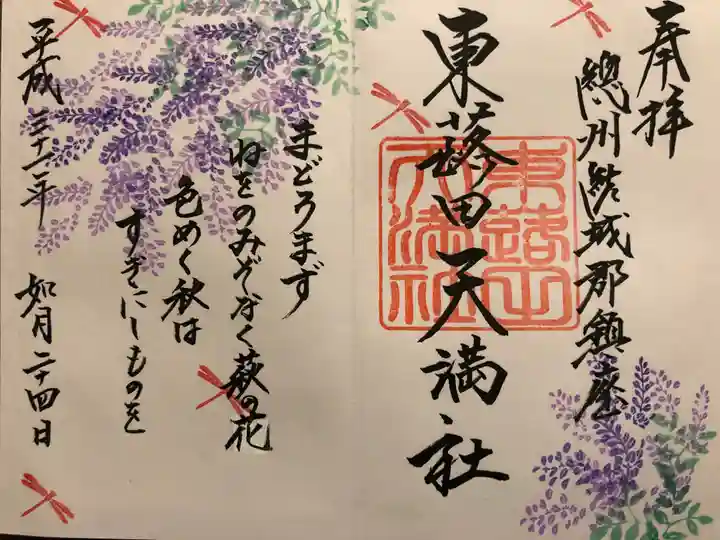 奉拝
總州結城郡鎮座
東蕗田天満社
まどろまず
ねをのみぞなく萩の花
色めく秋は
すぎにしものを
平成三十一年
如月二十四日